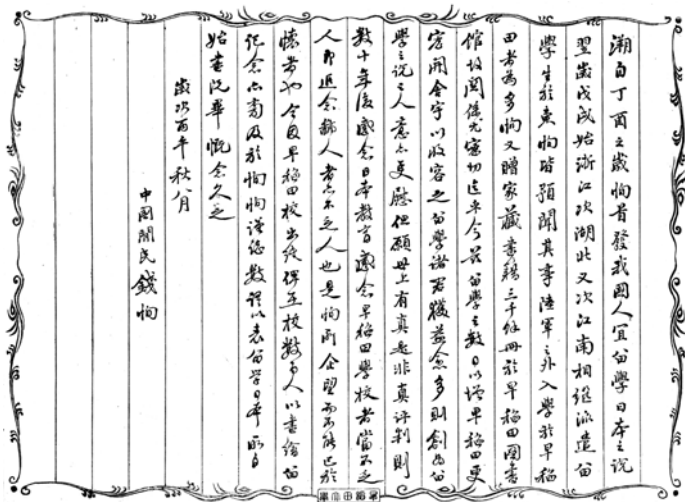 溯自丁酉之歲恂首發我國人宜留學日本之說
翌歲戊戌始浙江次湖北又次江南相繼派遣留
學生於東恂皆預聞其事陸軍之外入學於早稻
田者為多恂又贈家藏書籍三千餘冊於早稻田圖書
館故關係尤密切邇來今茲留學之數日以增早稻田更
宏開會宇以收容之留學諸君獲益愈多則創為留
學之說之人意亦更慰但願世上有真是非真評判則
數十年後感念日本教育感念早稻田學校者當不乏
人即追念鄙人者亦不乏人也是恂所企望而不能已於
懷者也今因早稻田校出紙俾在校數百人以書繪留
記念亦兼及於恂恂謹綴數語以表留學日本所自
始書既畢慨念久之
歲次丙午秋八月
中國閒民錢恂